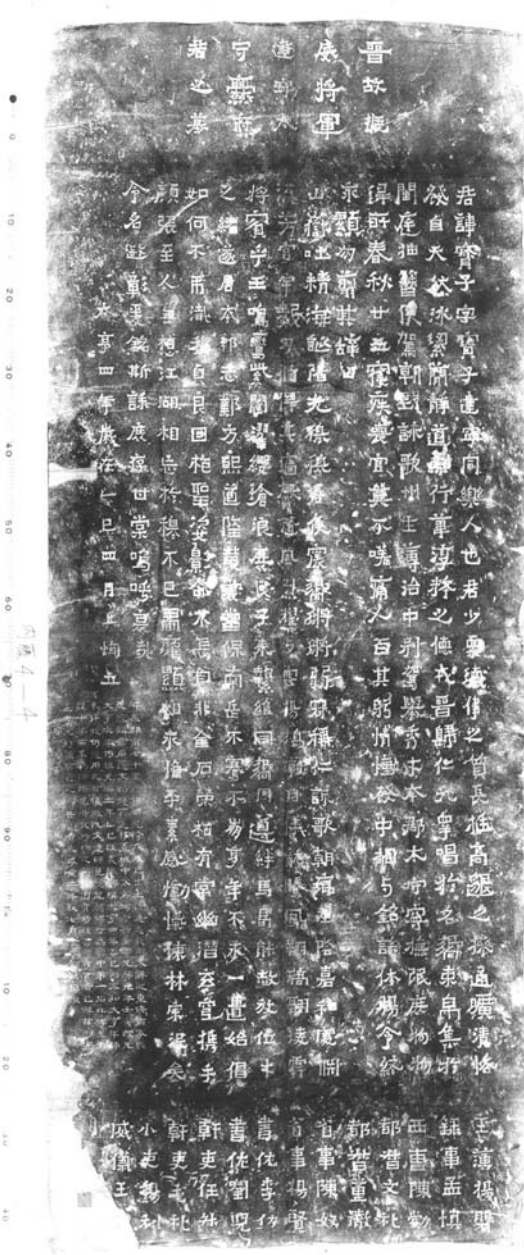 晉故振
威將軍
建寧太
守爨府
君之墓
君諱寶子字寶子建寧同樂人也君少稟瓌偉之質長挺高邈之操通曠清恪
發自天然冰潔簡靜道兼行葦淳粹之德戎晉歸仁九皋唱於名嚮束帛集於
閨庭抽簪俟駕朝野詠歌州主簿治中別駕舉秀才本郡太守寧撫氓庶物物
得所春秋廿五寢疾喪官莫不嗟痛人百其躬情慟發中相與銘誄休揚令終
永顯勿翦其辭曰
山嶽吐精海誕陥光穆穆君侯震嚮鏘鏘弱冠稱仁詠歌朝鄉在陰嘉和處淵
流芳宮宇數仞循得其墻馨隨風烈耀與雲揚鴻漸羽儀龍騰鳳翔矯翮凌霄
將賓乎王鳴鸞紫闥濯纓滄浪庶民子來縶維同嚮周遵絆馬曷能赦放位才
之緒遂居本邦志鄴方熙道隆黃裳當保南岳不騫不崩享年不永一匱始倡
如何不弔殲我貞良回枹聖姿影命不長自非金石榮枯有常幽潛玄穹攜手
顏張至人無想江湖相忘於穆不已肅雍顯相永惟平素感慟忾慷林宗沒矣
令名遐彰爰銘斯誄庶存甘棠嗚呼哀哉
大亨四年歲在乙巳四月上恂立
主簿楊磐
錄事孟慎
西曹陳勃
都督文禮
都督董徹
省事陳奴
省事楊賢
書佐李仂
書佐劉兒
幹吏任升
幹吏毛禮
小吏楊利
威儀王